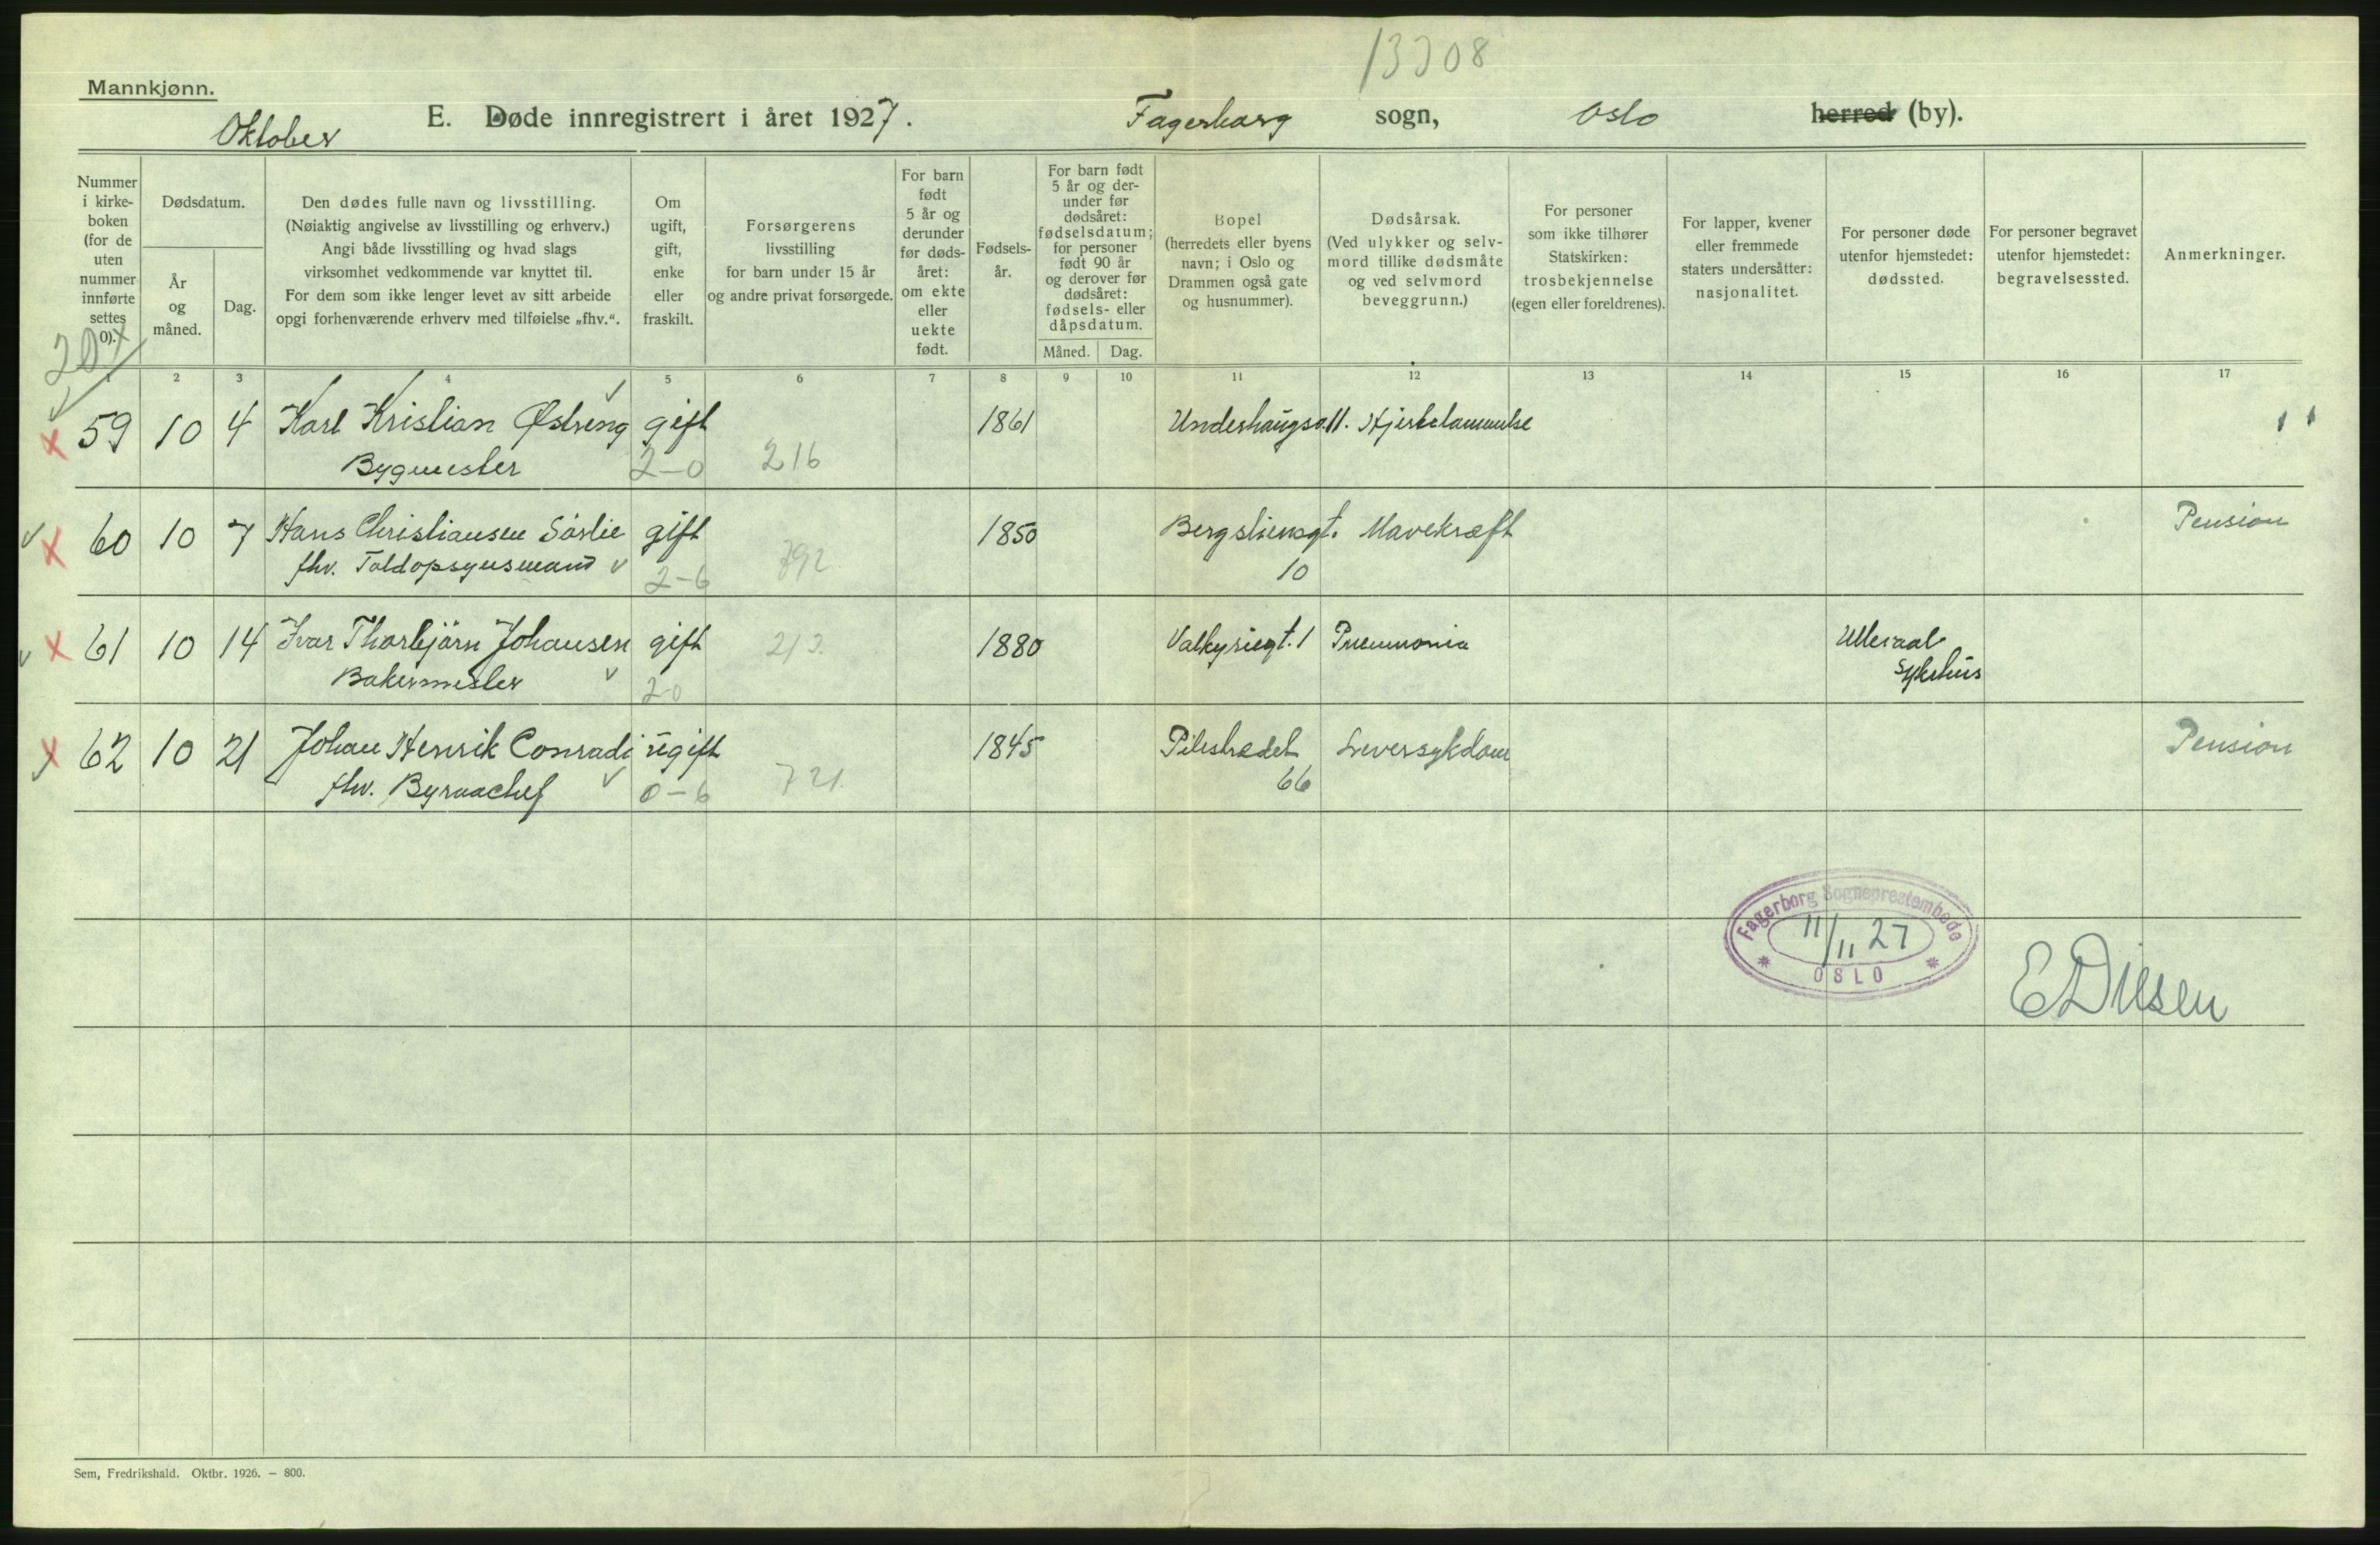 13308
Mannkjønn.
Oktober E. Døde innregistrert i året 1927. Fagerborg sogn, Oslo herred (by).
Nummer i kirkeboken (for de uten nummer innførte settes 0).
Dødsdatum.
År og måned.
Dag.
Den dødes fulle navn og livsstilling.
(Nøiaktig angivelse av livsstilling og erhverv.)
Angi både livsstilling og hvad slags
virksomhet vedkommende var knyttet til.
For dem som ikke lenger levet av sitt arbeide
opgi forhenværende erhverv med tilføielse „fhv.“.
Om ugift, gift, enke eller fraskilt.
Forsørgerens
livsstilling
for barn under 15 år
og andre privat forsørgede.
For barn født 5 år og derunder før dødsåret: om ekte eller uekte født.
Fødselsår.
For barn født 5 år og derunder før dødsåret: fødselsdatum; for personer født 90 år og derover før dødsåret: fødsels- eller dåpsdatum.
Måned. Dag.
Bopel
(herredets eller byens
navn; i Oslo og
Drammen også gate
og husnummer).
Dødsårsak.
(Ved ulykker og selvmord tillike dødsmåte
og ved selvmord
beveggrunn.)
For personer
som ikke tilhører
Statskirken:
trosbekjennelse
(egen eller foreldrenes).
For lapper, kvener
eller fremmede
staters undersåtter:
nasjonalitet.
For personer døde
utenfor hjemstedet:
dødssted.
For personer begravet
utenfor hjemstedet:
begravelsessted.
Anmerkninger.
1 2 3 4 5 6 7 8 9 10 11 12 13 14 15 16 17
59 10 4 Karl Kristian Østreng gift 1861 Underhaugsv. 11. Hjertelammelse
Bygmester 2-0 216
60 10 7 Hans Christiansen Sörlie gift 1850 Bergsliensgt. Mavekræft Pension
fhv. Toldopsynsmand 2-6 792 10
61 10 14 Ivar Thorbjörn Johansen gift 213. 1880 Valkyriegt. 1 Pneumonia Ullevaal
Bakermester 2-0 sykehus
62 10 21 Johan Henrik Conradi ugift 1845 Pilestrædet Leversykdom Pension
fhv. Byraachef 0-6 721. 66
Fagerborg Sogneprestembede
11/11 27
OSLO
Sem, Fredrikshald. Oktbr. 1926. – 800.